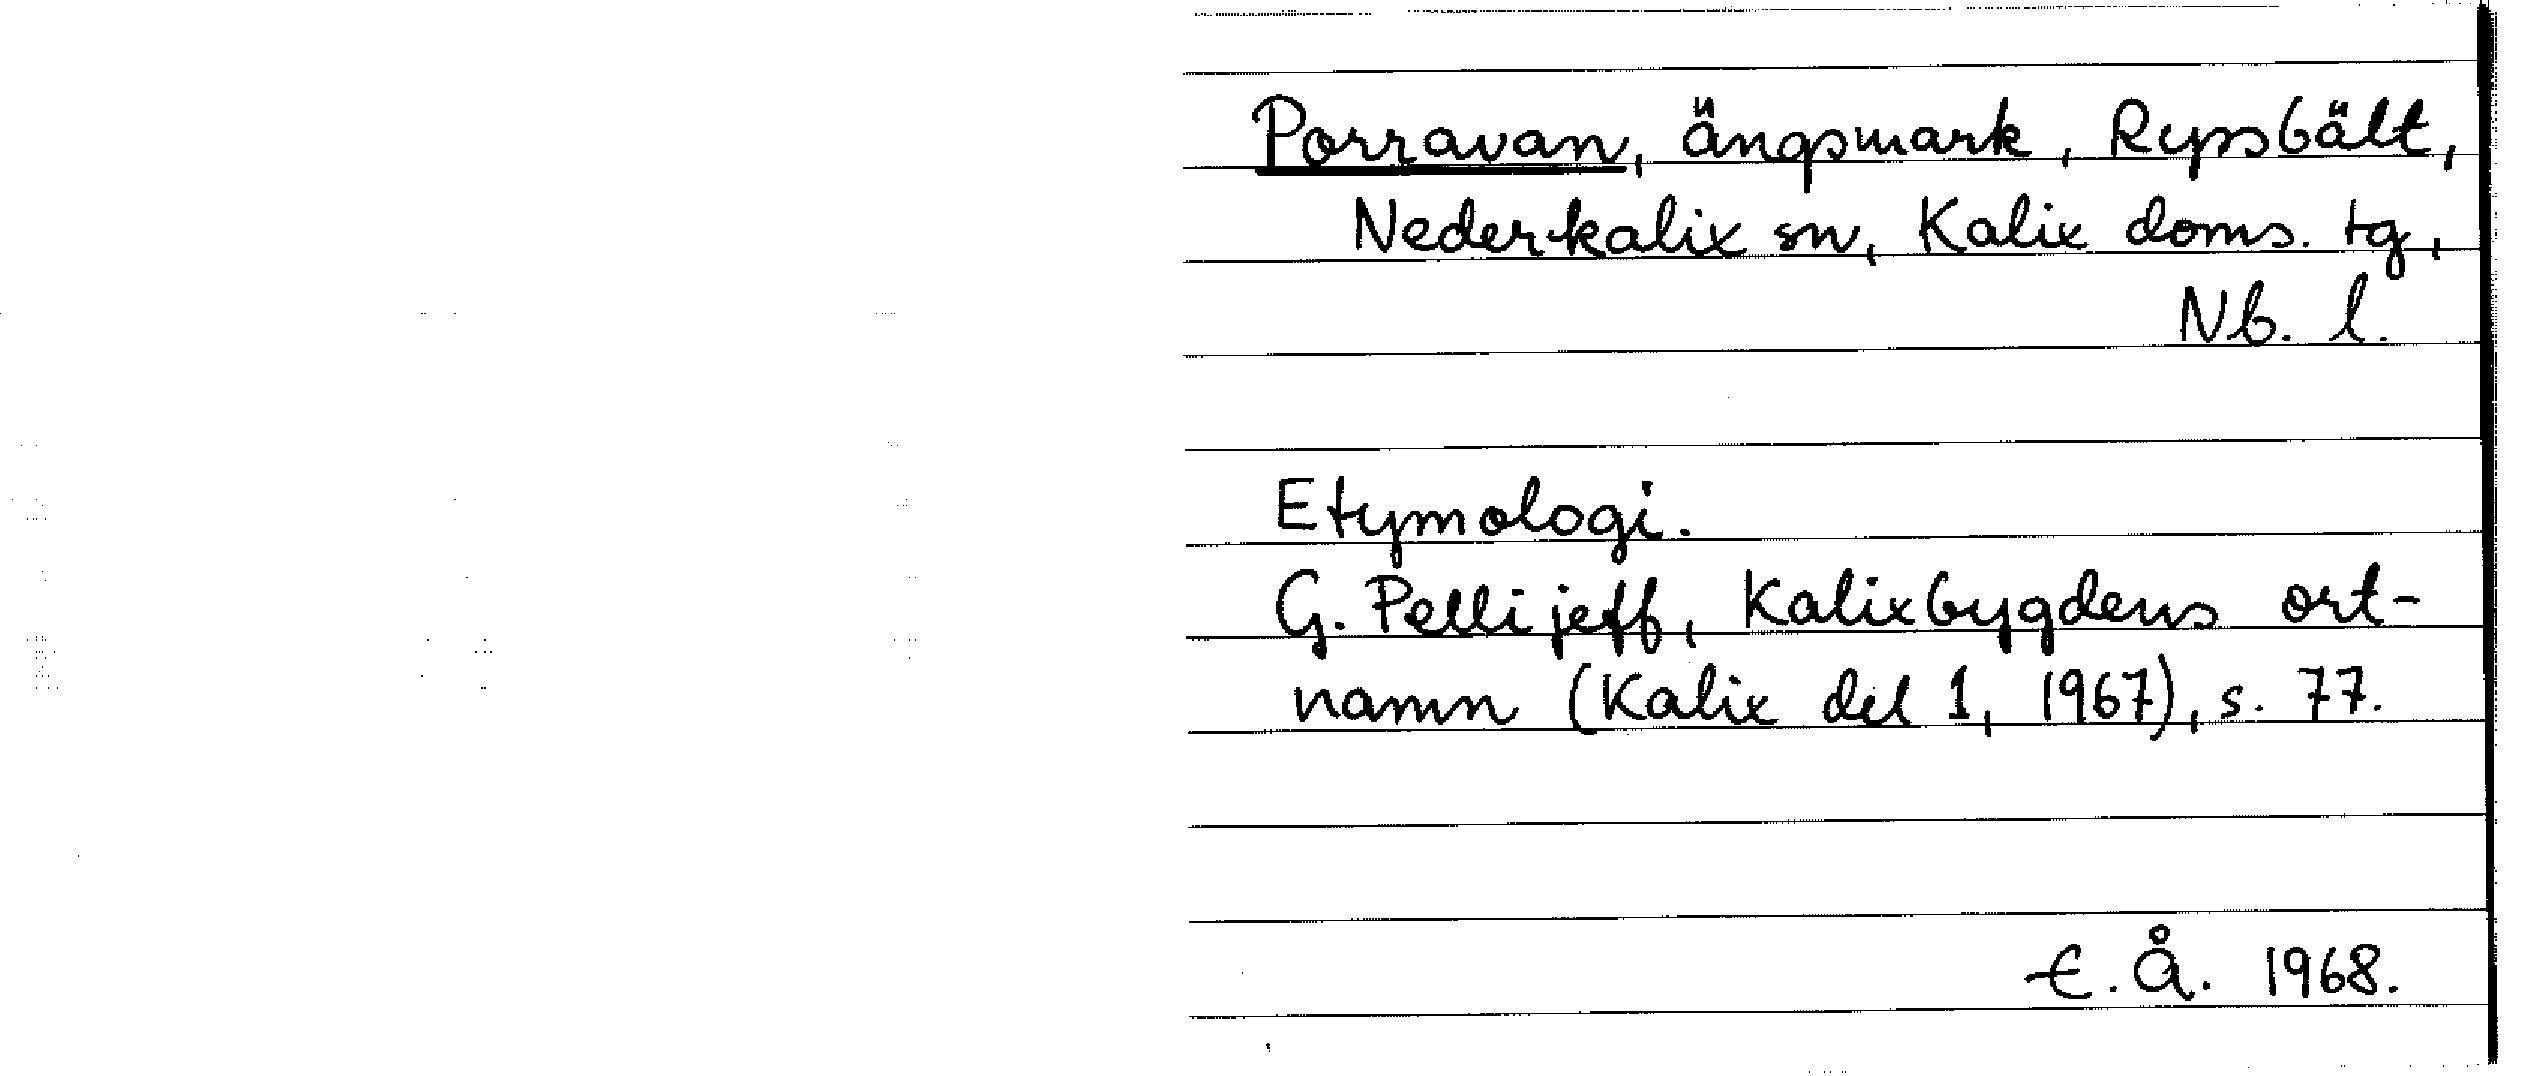 Porravan, ängsmark, Rypsbält,
Nederkalix sn, Kalix doms. tg,
Nb. l.
Etymologi.
G. Pellijeff, Kalixbygdens ort-
namn (Kalix del 1, 1967), s. 77.
E. Å. 1968.